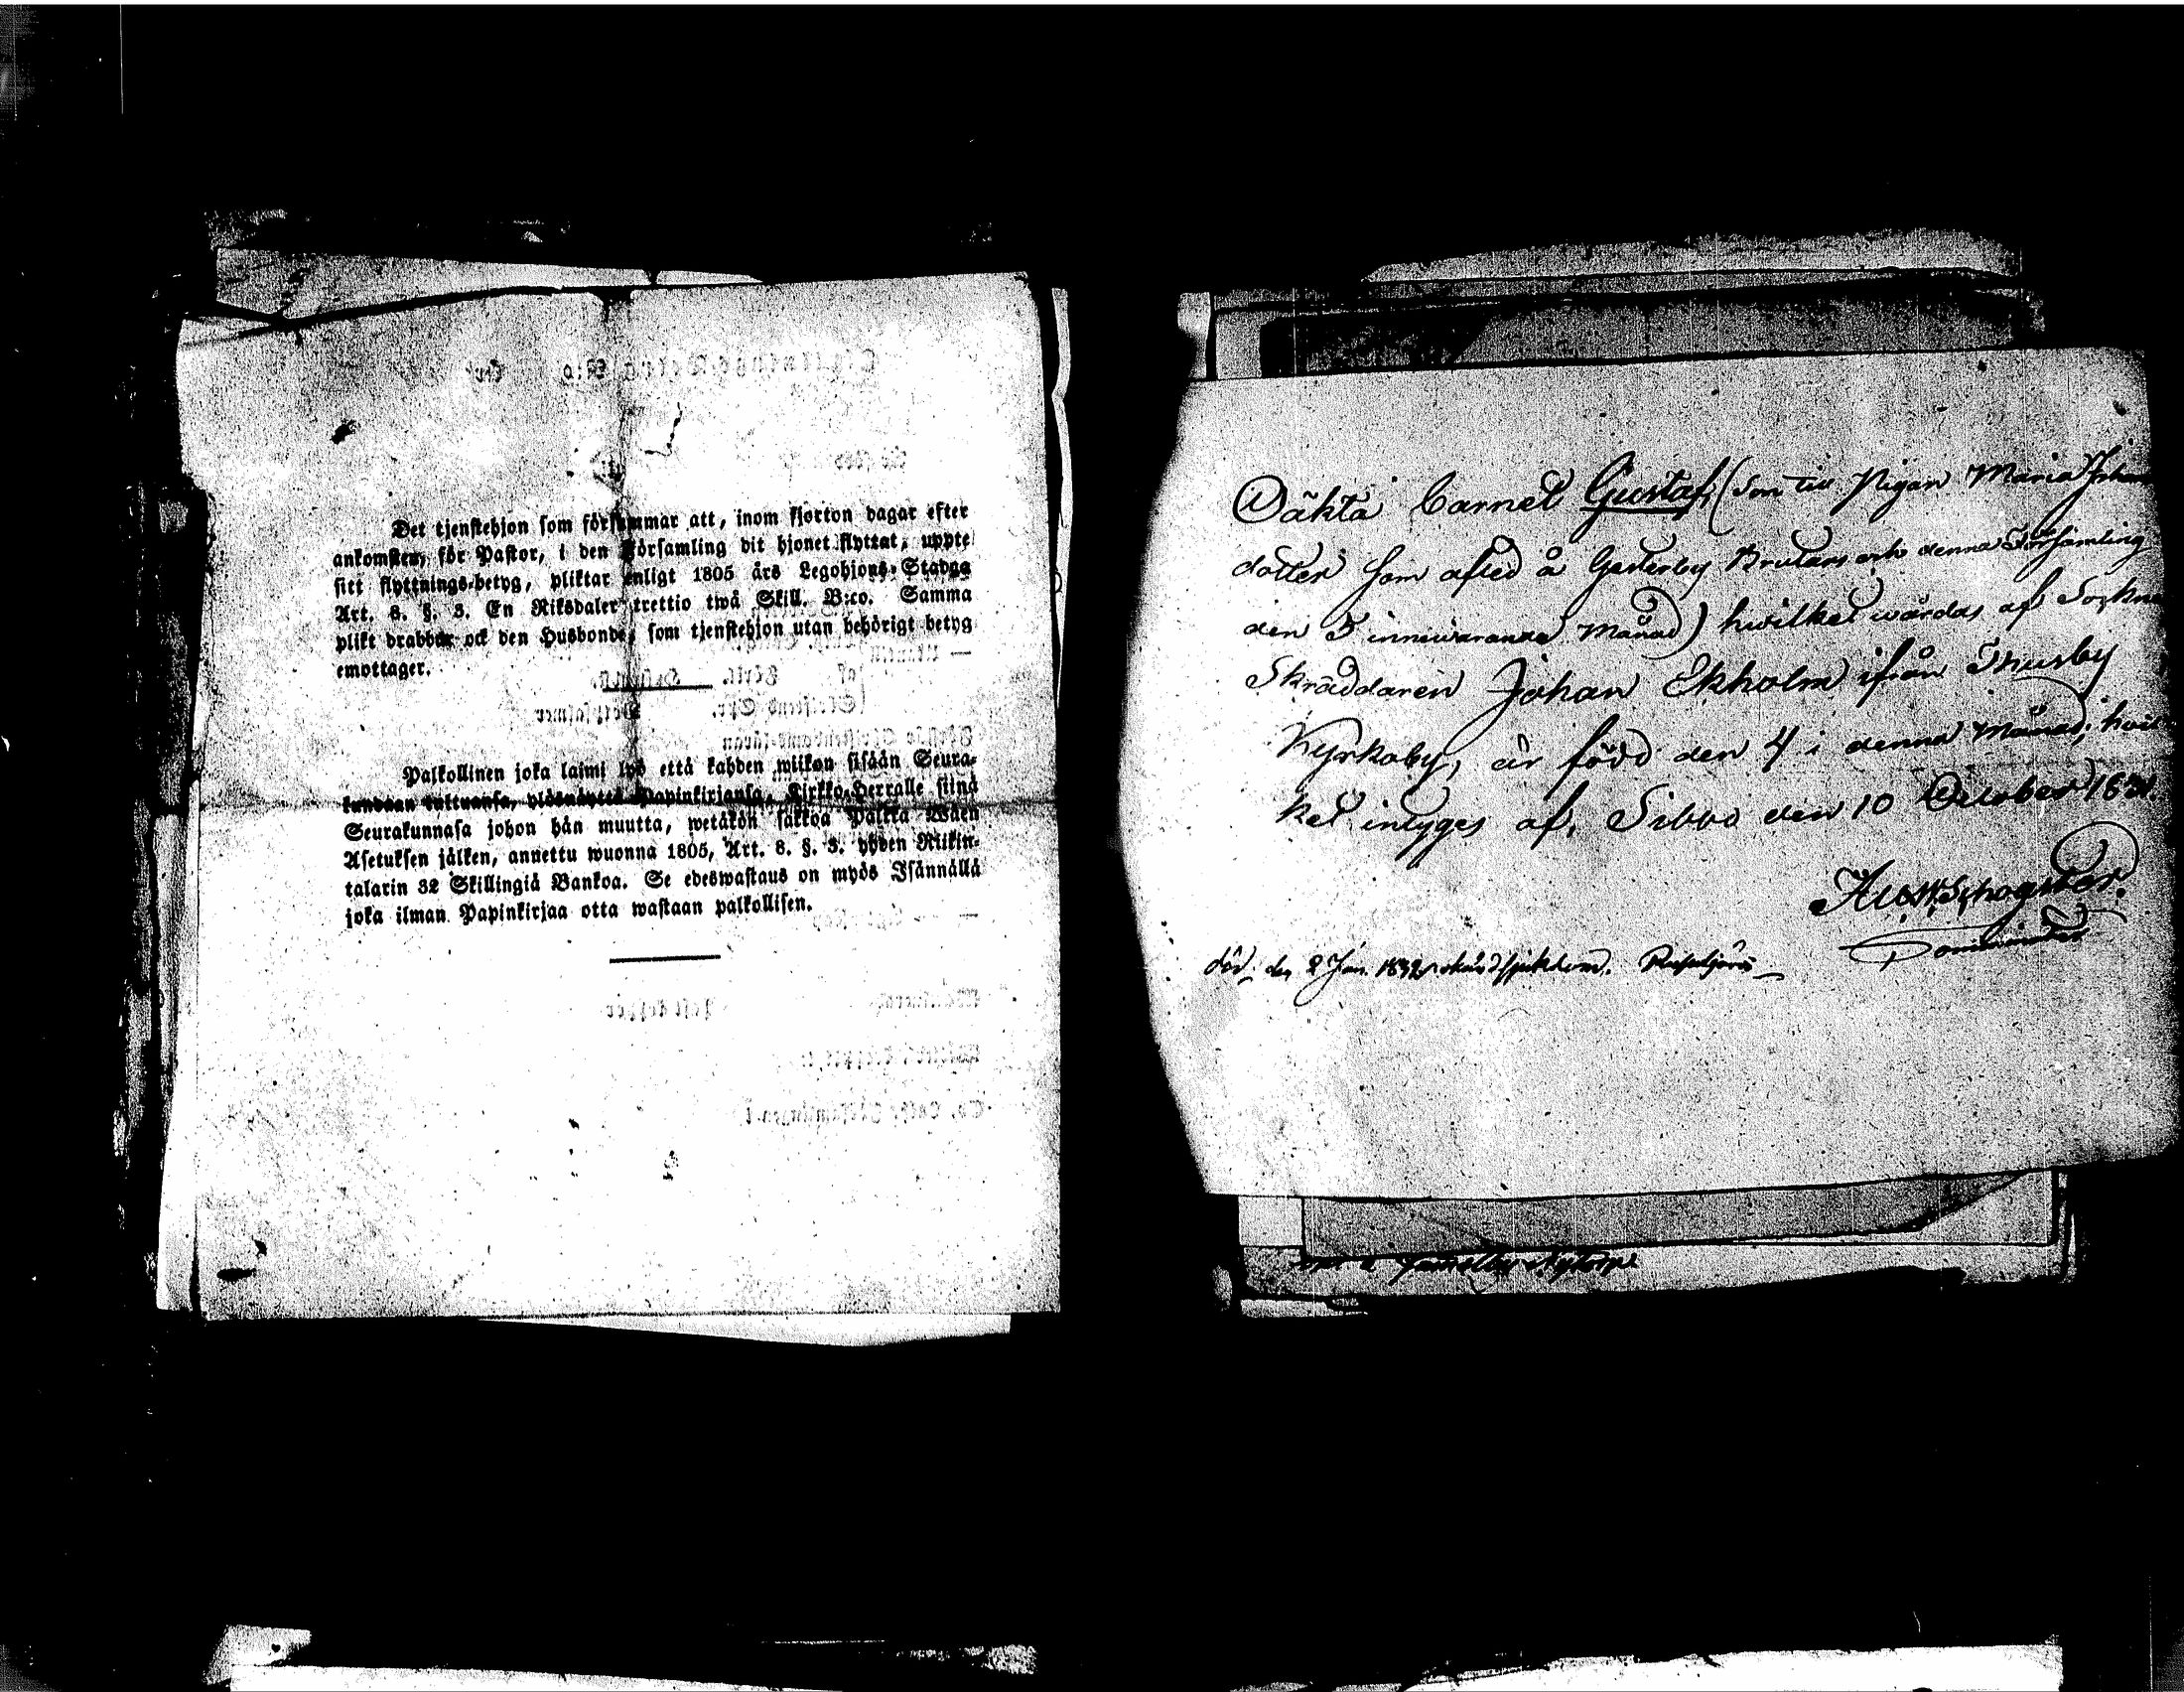 Det tjenstehjon som försummar att, inom fjorton dagar efter
ankomsten, för Pastor, i den Församling dit hjonet flyttat, uppte
sitt flyttnings-betyg, pliktar enligt 1805 års Legohjons-Stadga
Art. 8. §. 3. En Riksdaler trettio twå Skill. B:co. Samma
plikt drabbar ock den Husbonde, som tjenstehjon utan behörigt betyg
emottager.
Palkollinen joka laimi lyö että kahden wiikon sisään Seura-
kundaan tultuansa, ylösnäyttä Papinkirjansa, Kirkko-Herralle siinä
Seurakunnasa johon hän muutta, wetäkön sakkoa Palkka Wäen
Asetuksen jälken, annettu wuonna 1805, Art. 8. §. 3. yhden Riikin-
talarin 32 Skillingiä Bankoa. Se edeswastaus on myös Isännällä
joka ilman Papinkirjaa otta wastaan palkollisen.
Oäkta barnet Gustaf, (Son till Pigan Maria Johans
dotter som afled å Gesterby denna Församling
den 5 innewarande Månad) hwilket wårdas af Sockne
Skräddaren Johan Ekholm ifrån Thusby
Kyrkoby, är född den 4 i denna Månad; hwil
ket intyges af, Sibbo den 10 October 1831.
död den 2 Jan. 1832